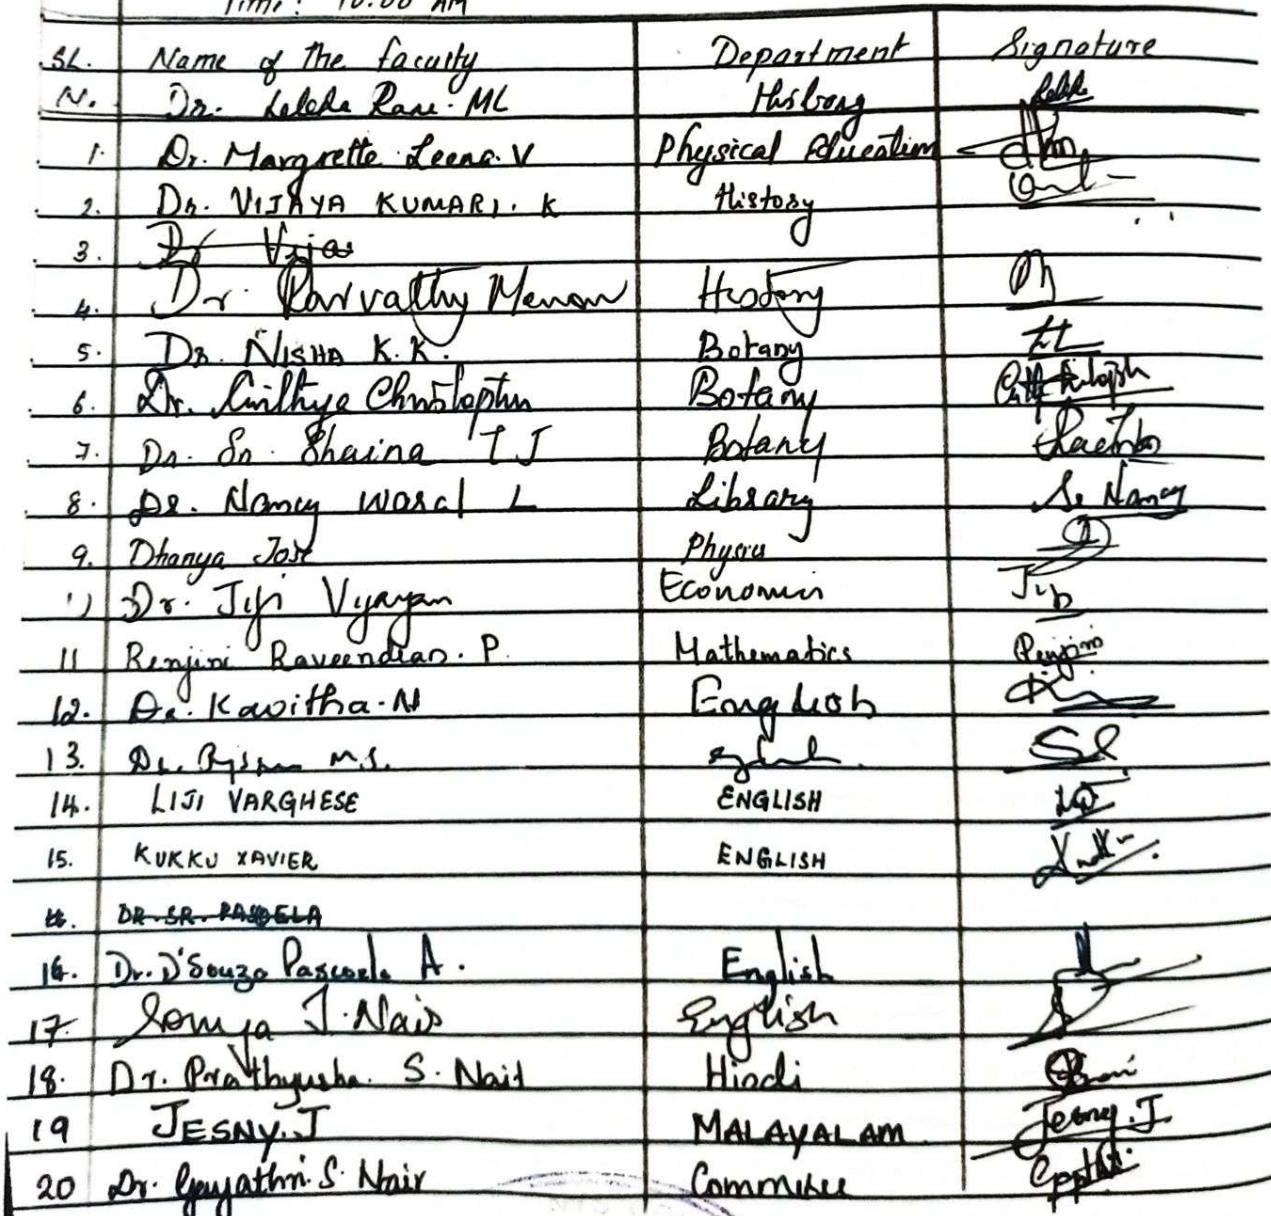 Time: 10.00 AM
SL. Name of the faculty Department Signature
N. Dr. Lekha Rani. ML History
1. Dr. Margrette Leena. V Physical Education
2. Dr. VIJAYA KUMARI. K History
3. Dr Vija
4. Dr. Parvathy Menon History
5. Dr. NISHA K.K. Botany
6. Dr. Cinthya Christopher Botany
7. Dr. Sr. Shaina T J Botany
8. Dr. Nancy L Library Sr Nancy
9. Dhanya Jose Physics
Dr. Jiji Vijayan Economics
11 Renjini Raveendran. P. Mathematics Renjini
12. Dr. Kavitha. N English
13. Dr. M.S.
14. LIJI VARGHESE ENGLISH
15. KUKKU XAVIER ENGLISH
DR. SR. PASOELA
16. Dr. D'Souza Pascoela A. English
17. Somya J. Nair English
18. Dr. Prathyusha. S. Nair Hindi
19 JESNY. J MALAYALAM Jesny. J
20 Dr. Gayathri. S. Nair Commerce